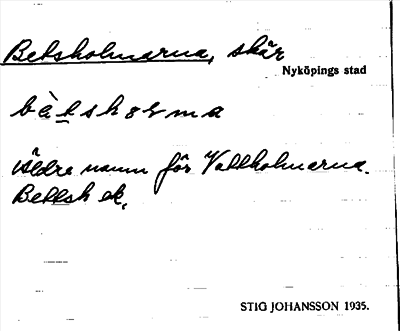 Betsholmarna, skär
Nyköpings stad
bètshɷrma
Äldre namn för Vattholmarna.
Bettsh ek.
STIG JOHANSSON 1935.